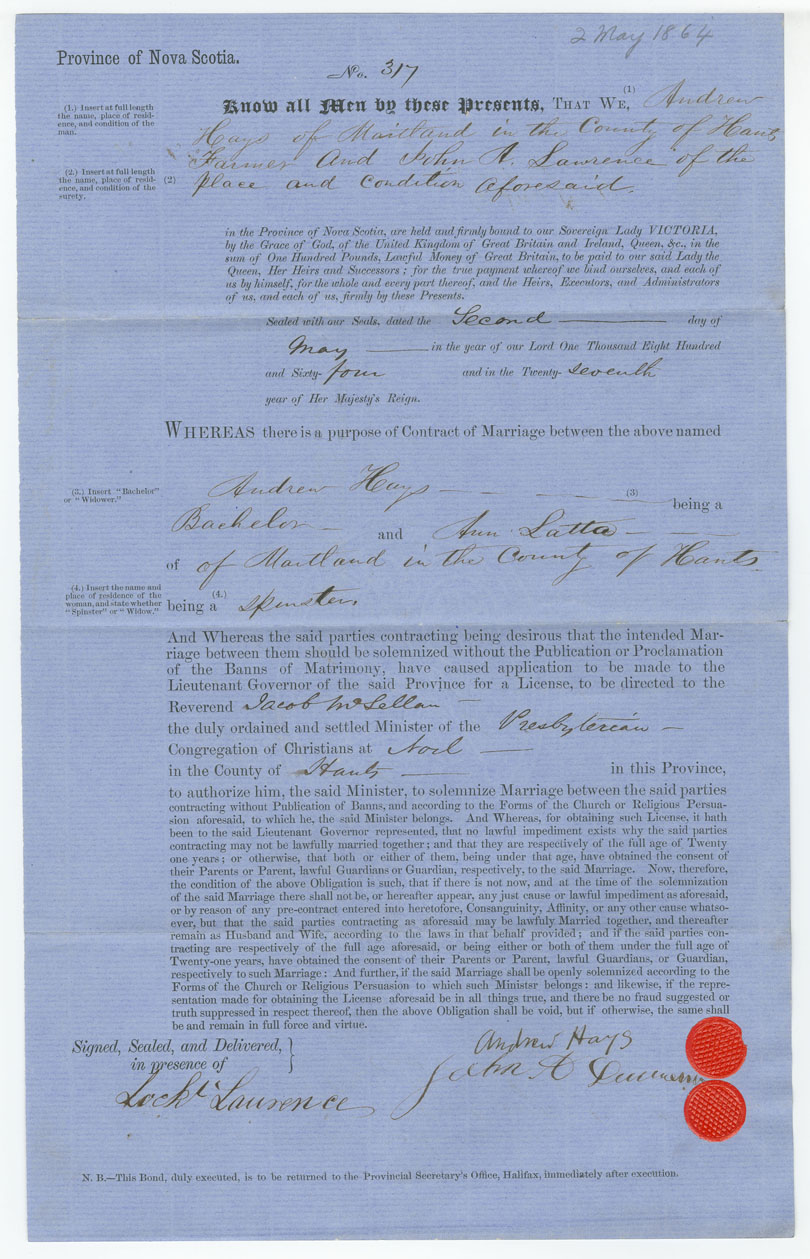 2 May 1864
Province of Nova Scotia.
No. 317
(1.) Insert at full length
the name, place of resid-
ence, and condition of the
man.
Know all Men by these Presents, THAT WE, (1) Andrew
Hays of Maitland in the County of Hants
Farmer And John A. Lawrence of the
(2.) Insert at full length
the name, place of resid-
ence, and condition of the
surety.
(2) place and Condition aforesaid.
in the Province of Nova Scotia, are held and firmly bound to our Sovereign Lady VICTORIA,
by the Grace of God, of the United Kingdom of Great Britain and Ireland, Queen, &c., in the
sum of One Hundred Pounds, Lawful Money of Great Britain, to be paid to our said Lady the
Queen, Her Heirs and Successors; for the true payment whereof we bind ourselves, and each of
us by himself, for the whole and every part thereof, and the Heirs, Executors, and Administrators
of us, and each of us, firmly by these Presents.
Sealed with our Seals, dated the Second day of
May in the year of our Lord One Thousand Eight Hundred
and Sixty-four and in the Twenty-seventh
year of Her Majesty's Reign.
WHEREAS there is a purpose of Contract of Marriage between the above named
(3.) Insert "Bachelor"
or "Widower."
Andrew Hays (3) being a
Bachelor and Ann Latta
of of Maitland in the County of Hants
(4.) Insert the name and
place of residence of the
woman, and state whether
"Spinster" or "Widow."
being a (4.) spinster.
And Whereas the said parties contracting being desirous that the intended Mar-
riage between them should be solemnized without the Publication or Proclamation
of the Banns of Matrimony, have caused application to be made to the
Lieutenant Governor of the said Province for a License, to be directed to the
Reverend Jacob McLellan
the duly ordained and settled Minister of the Presbyterian
Congregation of Christians at Noel
in the County of Hants in this Province,
to authorize him, the said Minister, to solemnize Marriage between the said parties
contracting without Publication of Banns, and according to the Forms of the Church or Religious Persua-
sion aforesaid, to which he, the said Minister belongs. And Whereas, for obtaining such License, it hath
been to the said Lieutenant Governor represented, that no lawful impediment exists why the said parties
contracting may not be lawfully married together; and that they are respectively of the full age of Twenty
one years; or otherwise, that both or either of them, being under that age, have obtained the consent of
their Parents or Parent, lawful Guardians or Guardian, respectively, to the said Marriage. Now, therefore,
the condition of the above Obligation is such, that if there is not now, and at the time of the solemnization
of the said Marriage there shall not be, or hereafter appear, any just cause or lawful impediment as aforesaid,
or by reason of any pre-contract entered into heretofore, Consanguinity, Affinity, or any other cause whatso-
ever, but that the said parties contracting as aforesaid may be lawfuly Married together, and thereafter
remain as Husband and Wife, according to the laws in that behalf provided; and if the said parties con-
tracting are respectively of the full age aforesaid, or being either or both of them under the full age of
Twenty-one years, have obtained the consent of their Parents or Parent, lawful Guardians, or Guardian,
respectively to such Marriage: And further, if the said Marriage shall be openly solemnized according to the
Forms of the Church or Religious Persuasion to which such Ministsr belongs: and likewise, if the repre-
sentation made for obtaining the License aforesaid be in all things true, and there be no fraud suggested or
truth suppressed in respect thereof, then the above Obligation shall be void, but if otherwise, the same shall
be and remain in full force and virtue.
Signed, Sealed, and Delivered, }
in presence of
Andrew Hays
John A
Lockt Laurence
N. B.—This Bond, duly executed, is to be returned to the Provincial Secretary's Office, Halifax, immediately after execution.